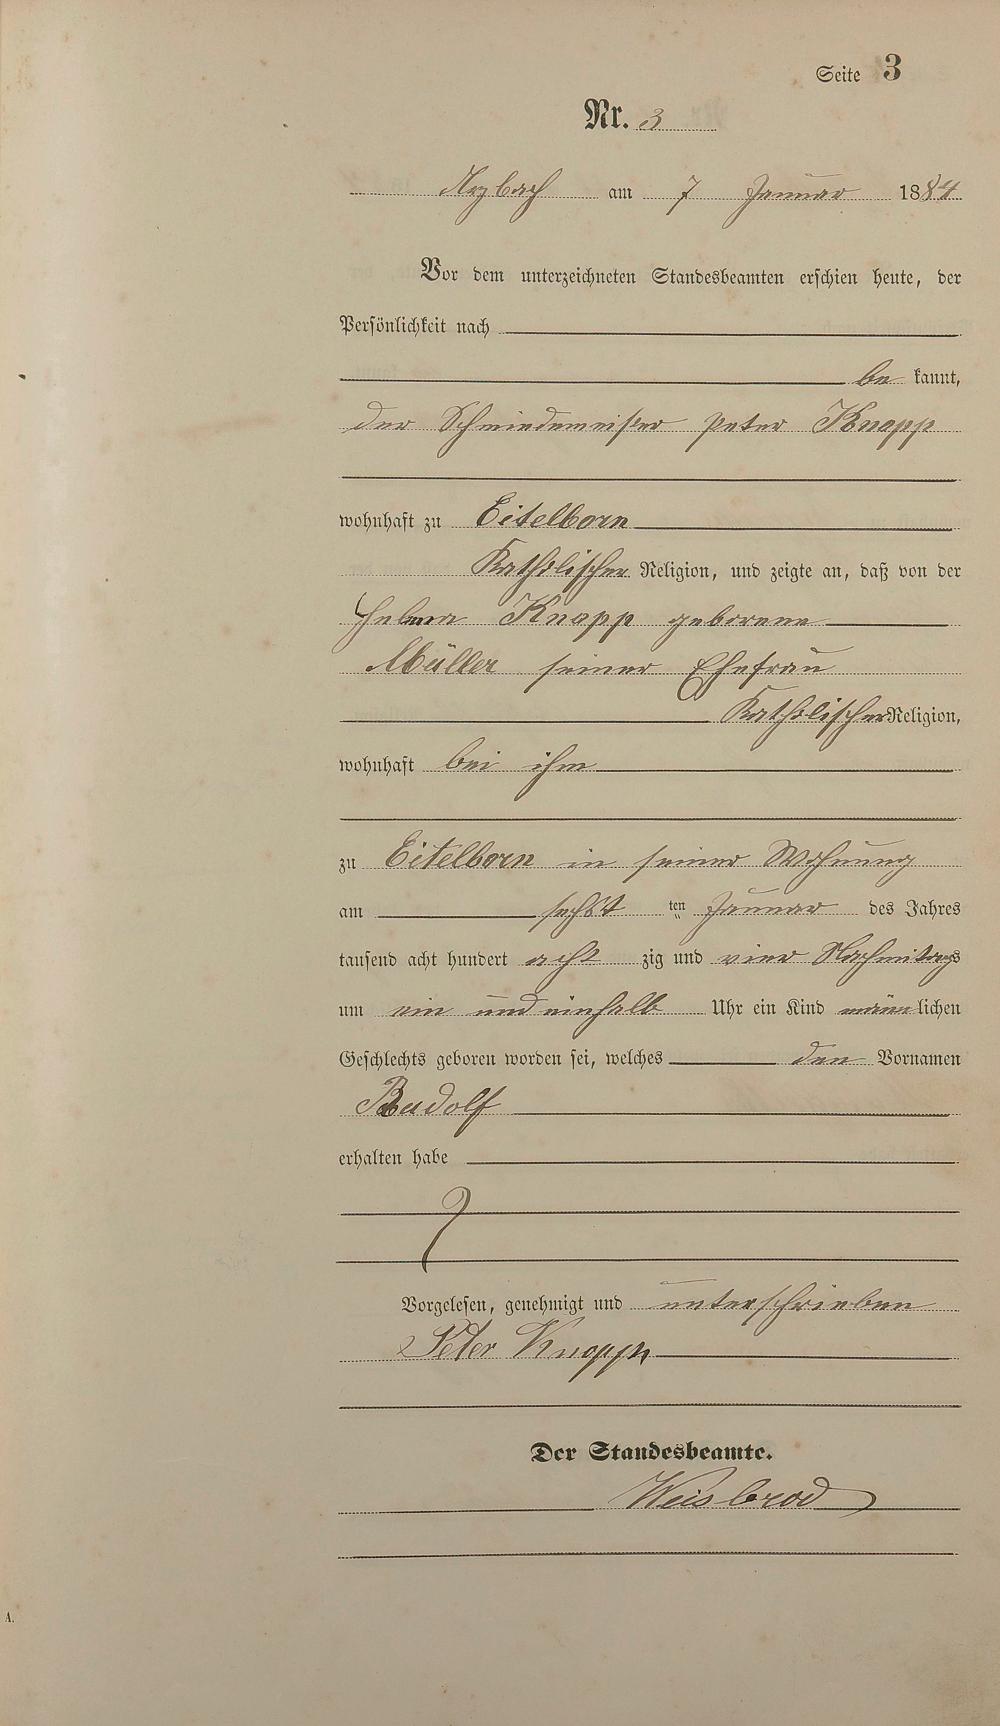 Seite 3
Nr. 3
Arzbach am 7 Januar 1884
Vor dem unterzeichneten Standesbeamten erschien heute, der
Persönlichkeit nach
be kannt,
der Schmiedemeister Peter Knopp
wohnhaft zu Eitelborn
Katholischer Religion, und zeigte an, daß von der
Helena Knopp geborene
Müller seiner Ehefrau
Katholischer Religion,
wohnhaft bei ihm
zu Eitelborn in seiner Wohnung
am sechst ten Januar des Jahres
tausend acht hundert acht zig und vier Nachmitags
um ein und einhalb Uhr ein Kind männlichen
Geschlechts geboren worden sei, welches den Vornamen
Rudolf
erhalten habe
Vorgelesen, genehmigt und unterschrieben
Peter Knopp
Der Standesbeamte.
Weisbrod
A.